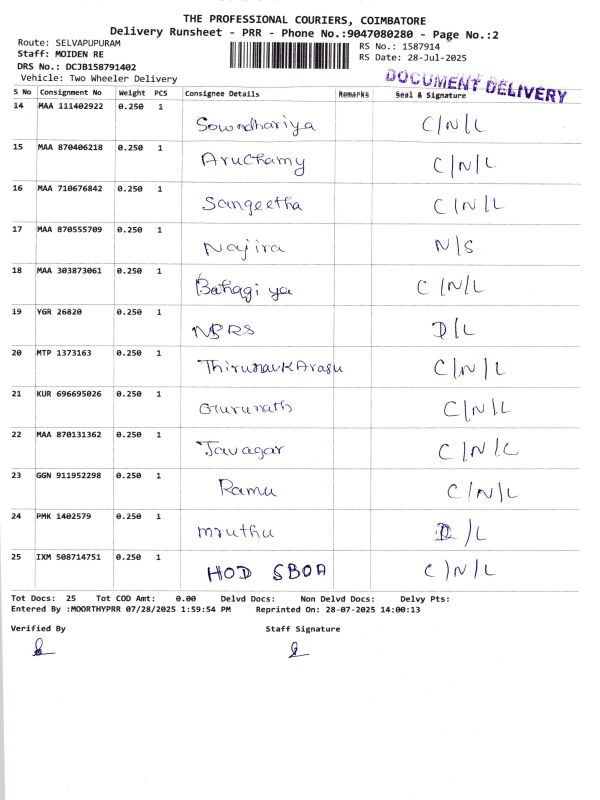 THE PROFESSIONAL COURIERS, COIMBATORE
Delivery Runsheet - PRR - Phone No.:9047080280 - Page No.:2
Route: SELVAPUPURAM
Staff: MOIDEN RE
DRS No.: DCJB158791402
Vehicle: Two Wheeler Delivery
RS No.: 1587914
RS Date: 28-Jul-2025
DOCUMENT DELIVERY
S No Consignment No Weight PCS Consignee Details Remarks Seal & Signature
14 MAA 111402922 0.250 1 Sowndhariya C/N/L
15 MAA 870406218 0.250 1 Aruchamy C/N/L
16 MAA 710676842 0.250 1 Sangeetha C/N/L
17 MAA 870555709 0.250 1 Najira N/S
18 MAA 303873061 0.250 1 Bahagiya C/N/L
19 YGR 26820 0.250 1 NBRS D/L
20 MTP 1373163 0.250 1 ThirunavkArasu C/N/L
21 KUR 696695026 0.250 1 Gurunath C/N/L
22 MAA 870131362 0.250 1 Javagar C/N/L
23 GGN 911952298 0.250 1 Ramu C/N/L
24 PMK 1402579 0.250 1 Mruthu D/L
25 IXM 508714751 0.250 1 HOD SBOA C/N/L
Tot Docs: 25 Tot COD Amt: 0.00 Delvd Docs: Non Delvd Docs: Delvy Pts:
Entered By :MOORTHYPRR 07/28/2025 1:59:54 PM Reprinted On: 28-07-2025 14:00:13
Verified By Staff Signature